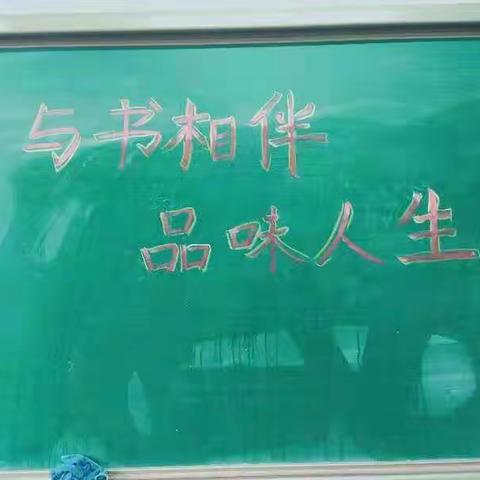 与书相伴
品味人生